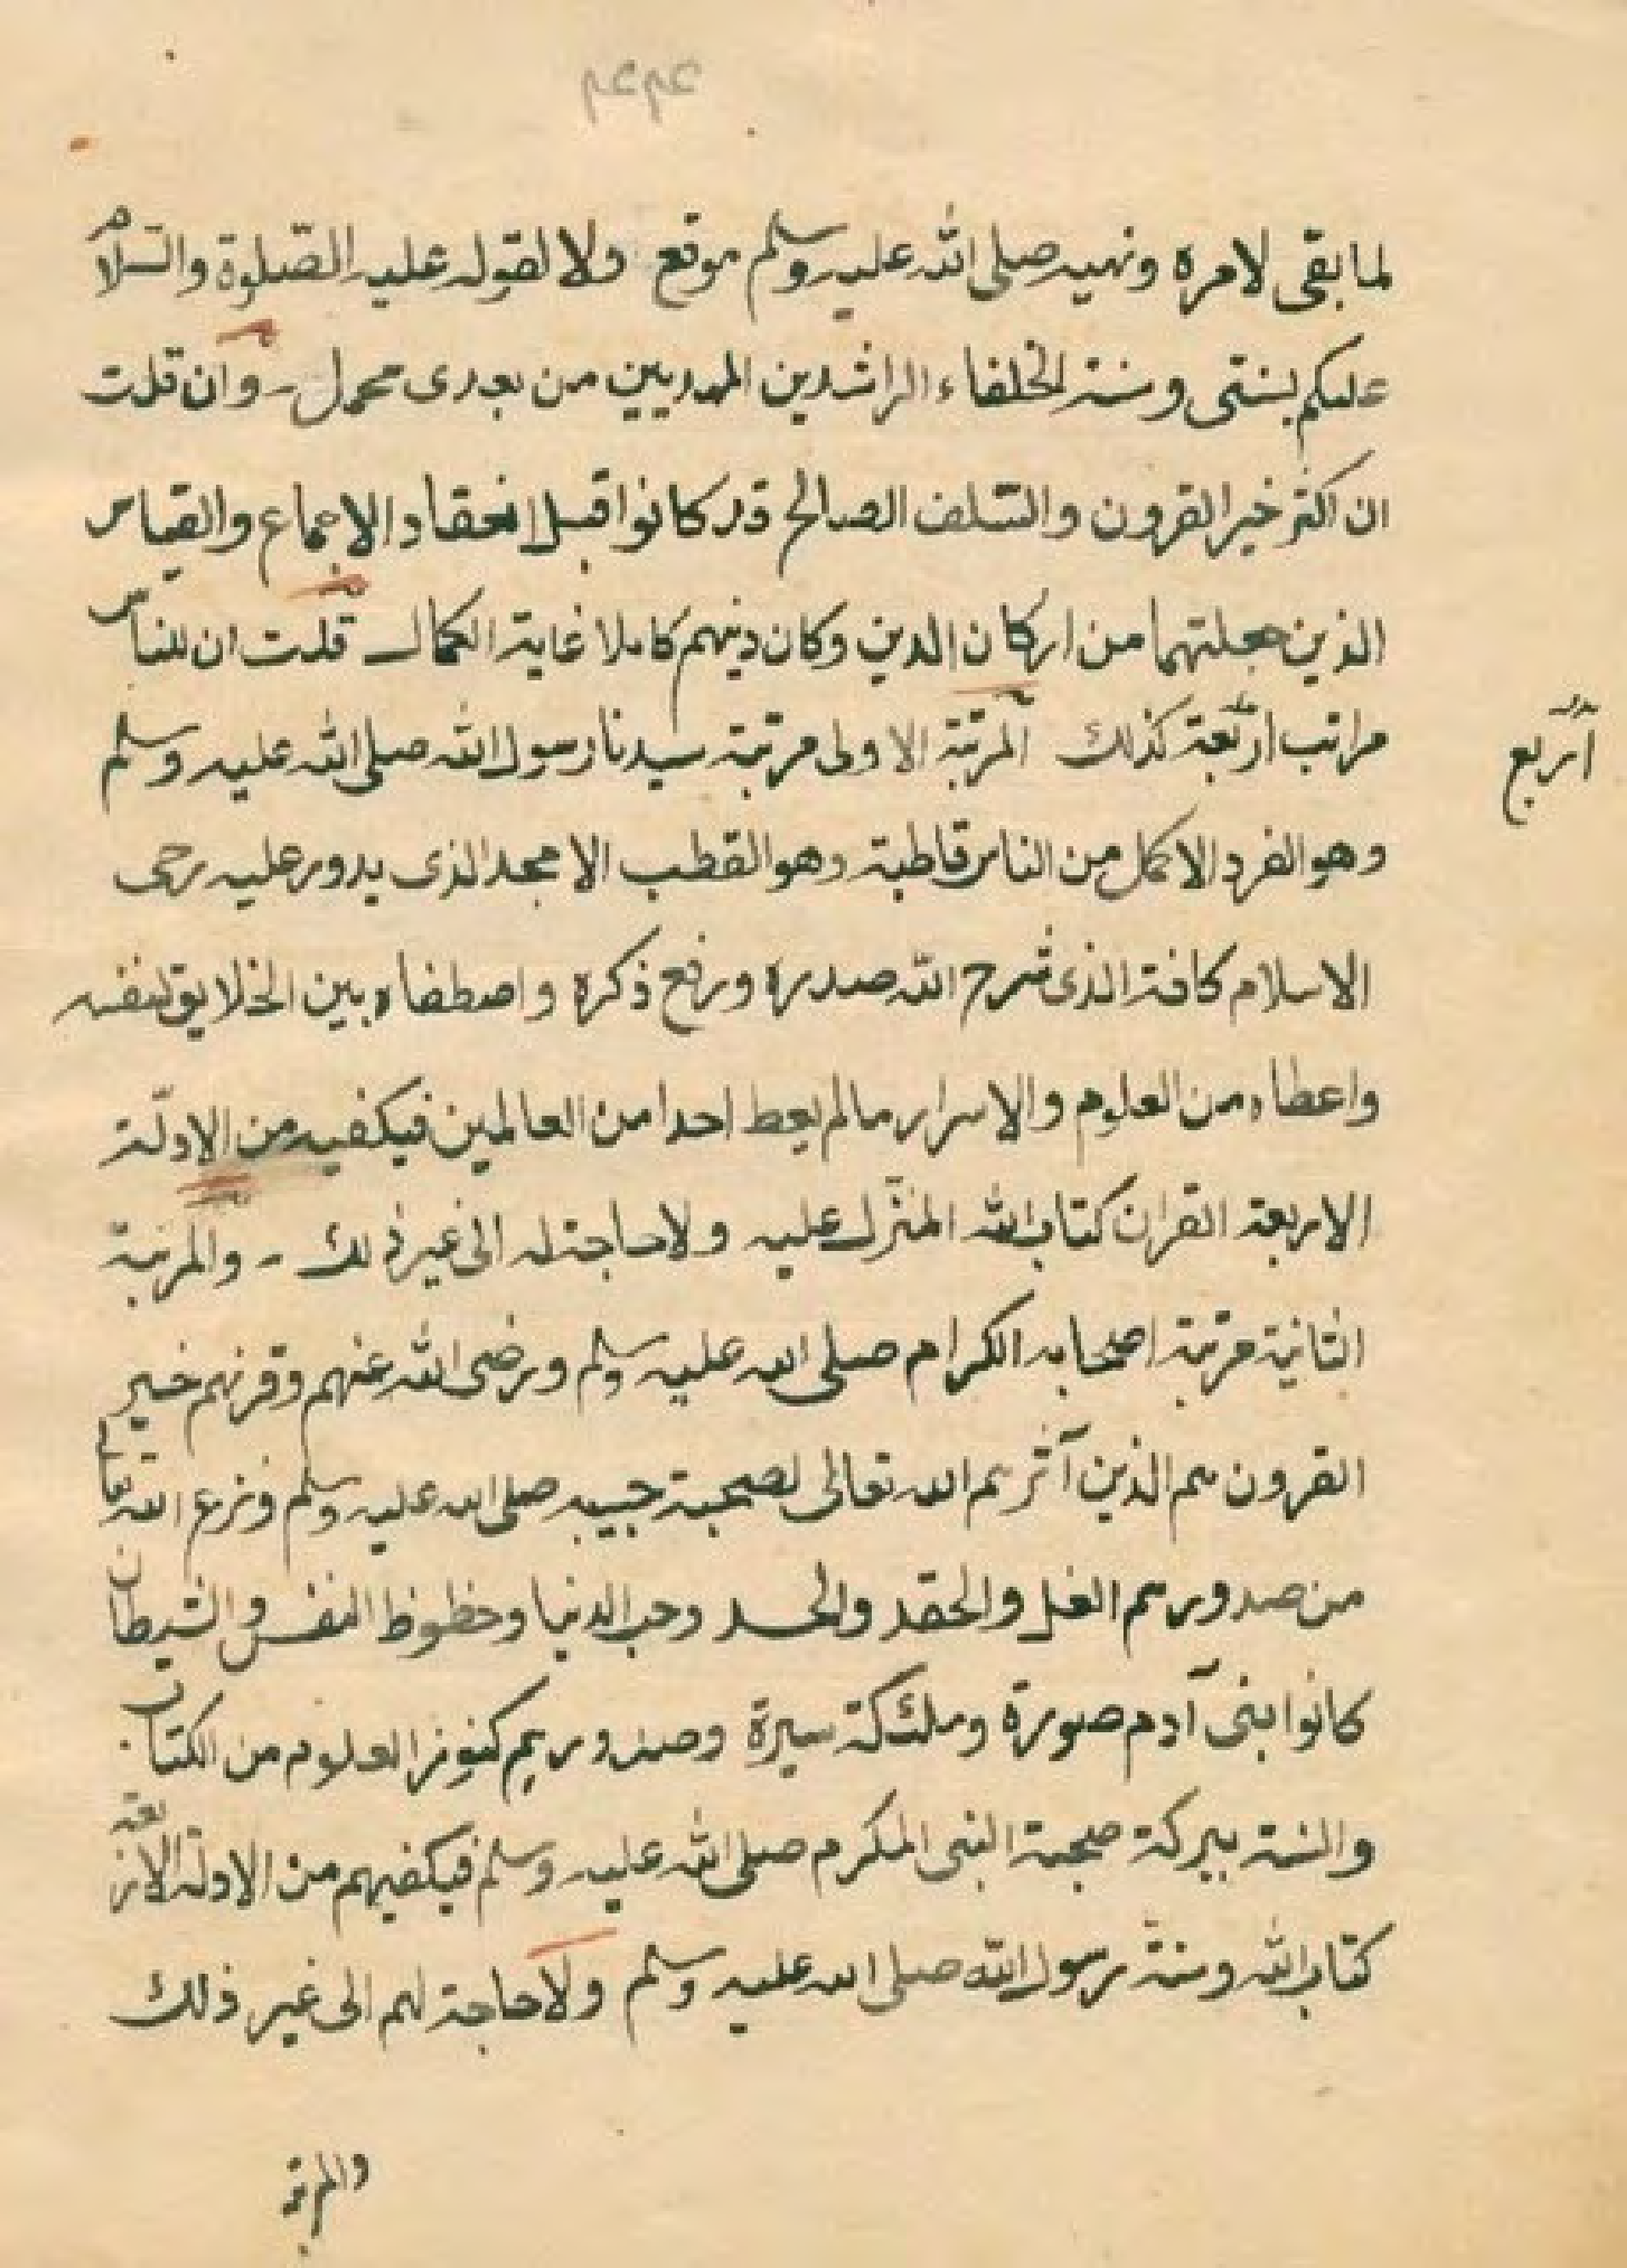 لما بقى لامره ونهيه صلى الله عليه وسلم موقع ولا لقوله عليه الصّلوة والسّلام
عليكم بسنتى وسنة الخلفاء الراشدين المهديين من بعدى محمل - وان قلت
ان اكثر خير القرون والسّلف الصالح قد كانوا قبل انعقاد الاجماع والقياس
الذين جعلتهما من اركان الدين وكان دينهم كاملا غاية الكمال قلت ان للناس
مراتب اربعة كذلك المرتبة الاولى مرتبة سيدنا رسول الله صلى الله عليه وسلم
اربع
وهو الفرد الاكمل من الناس قاطبة وهو القطب الامجد الذى يدور عليه رحى
الاسلام كافة الذى شرح الله صدره ورفع ذكره واصطفاه بين الخلايق لنفسه
واعطاه من العلوم والاسرار مالم يعط احدا من العالمين فيكفيه من الادلّة
الاربعة القران كتاب الله المنزل عليه ولا حاجة له الى غير ذلك - والمرتبة
الثانية مرتبة اصحابه الكرام صلى الله عليه وسلم ورضى الله عنهم وقرنهم خير
القرون هم الذين آثرهم الله تعالى لصحبة حبيبه صلى الله عليه وسلم ونزع الله تعا
من صدورهم الغل والحقد والحسد وحب الدنيا وحظوظ النفس والشيطان
كانوا بنى آدم صورة وملئكة سيرة وصدورهم كنوز العلوم من الكتاب
والسنة ببركة صحبة النبى المكرم صلى الله عليه وسلم فيكفيهم من الادلة الاربعة
كتاب الله وسنة رسول الله صلى الله عليه وسلم ولا حاجة لهم الى غير ذلك
والمرتبة